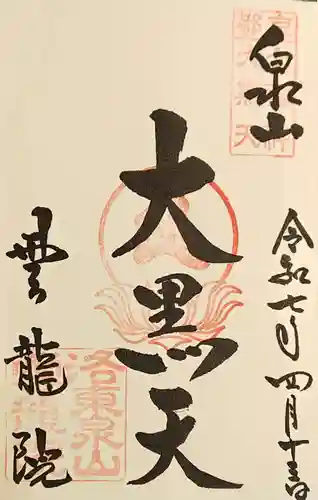 泉山
令和七年四月十三日
大黒天
雲龍院
洛東泉山